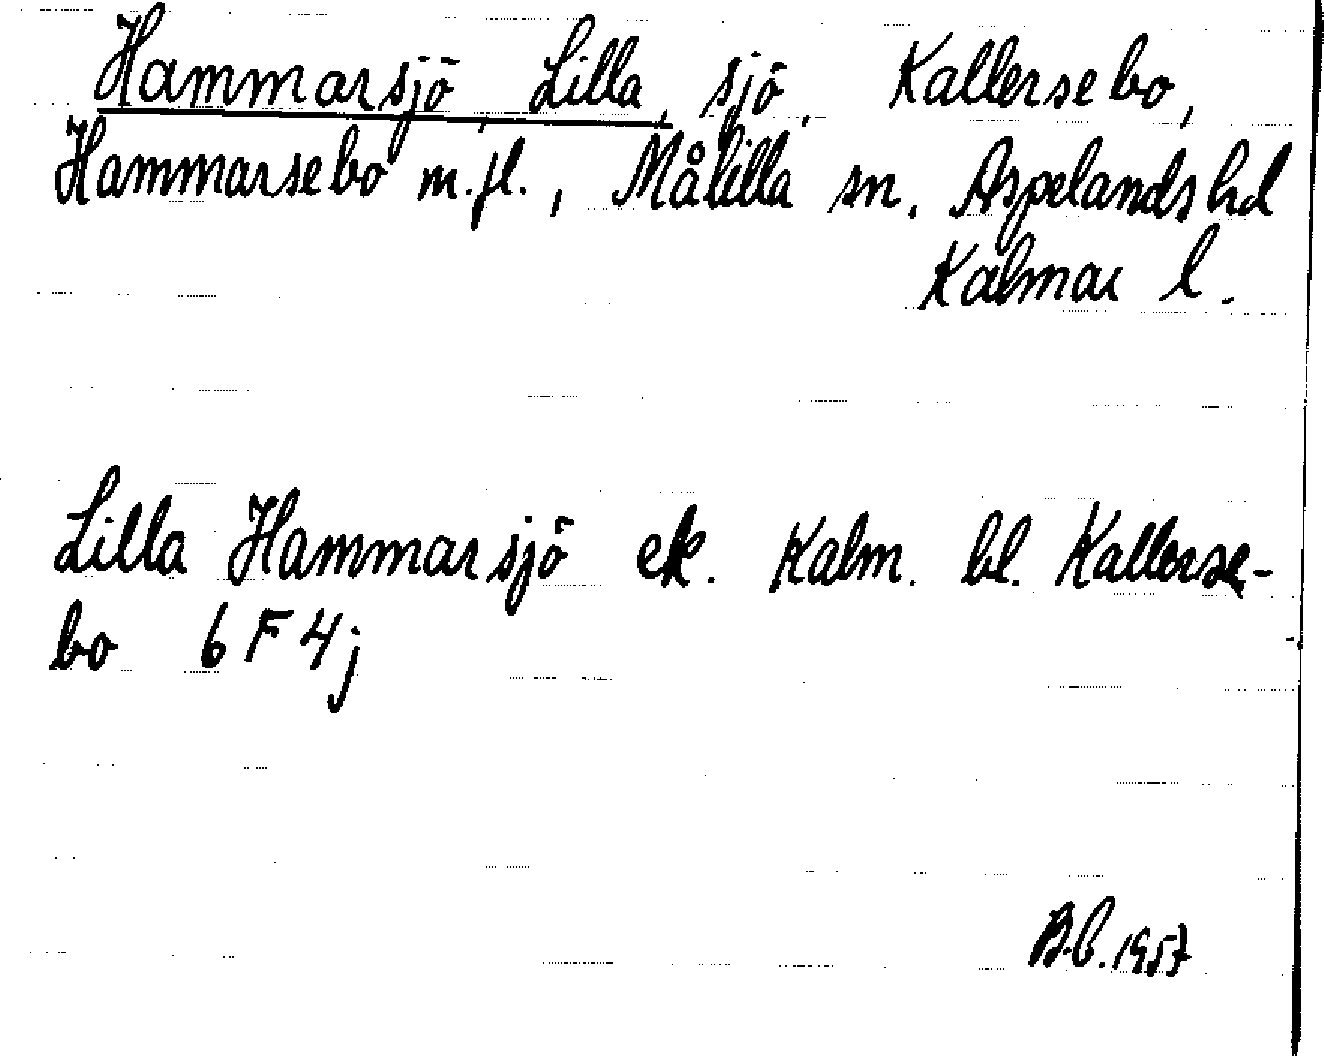 Hammarsjö, Lilla, sjö, Kallersebo,
Hammarsebo m.fl., Målilla sn, Aspelands hd
Kalmar l.
Lilla Hammarsjö ek. Kalm. bl. Kallerse-
bo 6 F 4j
B.b. 1957